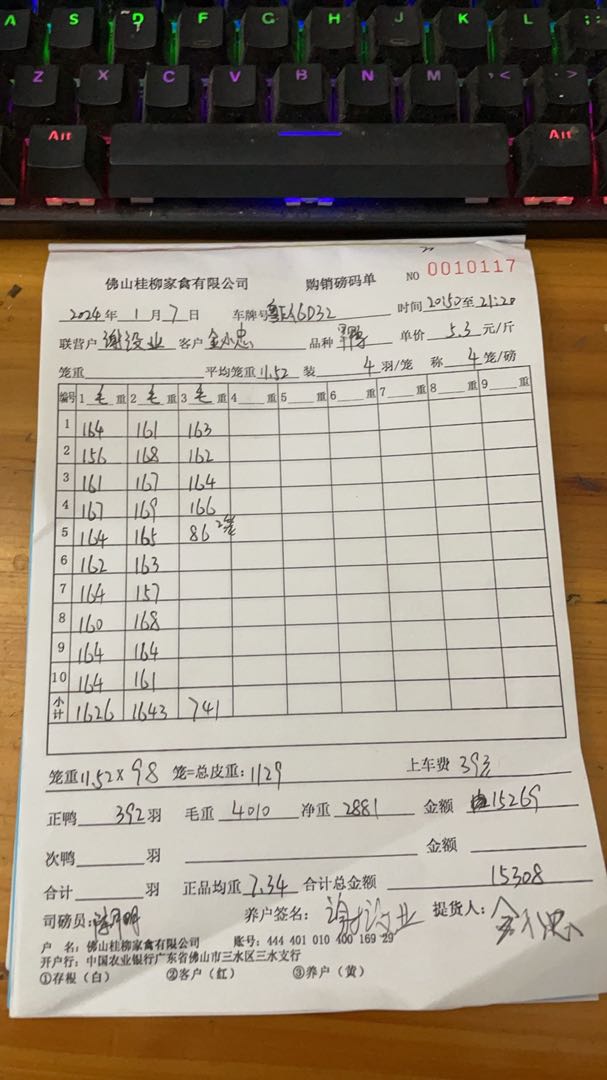 A S D F G H J K L
Z X C V B N M , < . >
Alt Alt
佛山桂柳家禽有限公司 购销磅码单 NO 0010117
2024年 1月 7日 车牌号 A6D32 时间 20:50至 21:20
联营户 谢设业 客户 金小忠 品种 单价 5.3 元/斤
笼重 平均笼重 11.52 装 4 羽/笼 称 4 笼/磅
编号 1 毛 重 2 毛 重 3 毛 重 4 重 5 重 6 重 7 重 8 重 9 重
1 164 161 163
2 156 168 162
3 161 167 164
4 167 169 166
5 164 165 86 2笼
6 162 163
7 164 157
8 160 168
9 164 164
10 164 161
小计 1626 1643 741
笼重 11.52 × 98 笼=总皮重: 1129 上车费 393
正鸭 392 羽 毛重 4010 净重 2881 金额 15269
次鸭 羽 金额
合计 羽 正品均重 7.34 合计总金额 15308
司磅员: 养户签名: 谢设业 提货人: 金小忠
户 名: 佛山桂柳家禽有限公司 账号: 444 401 010 400 169 29
开户行: 中国农业银行广东省佛山市三水区三水支行
①存根（白） ②客户（红） ③养户（黄）